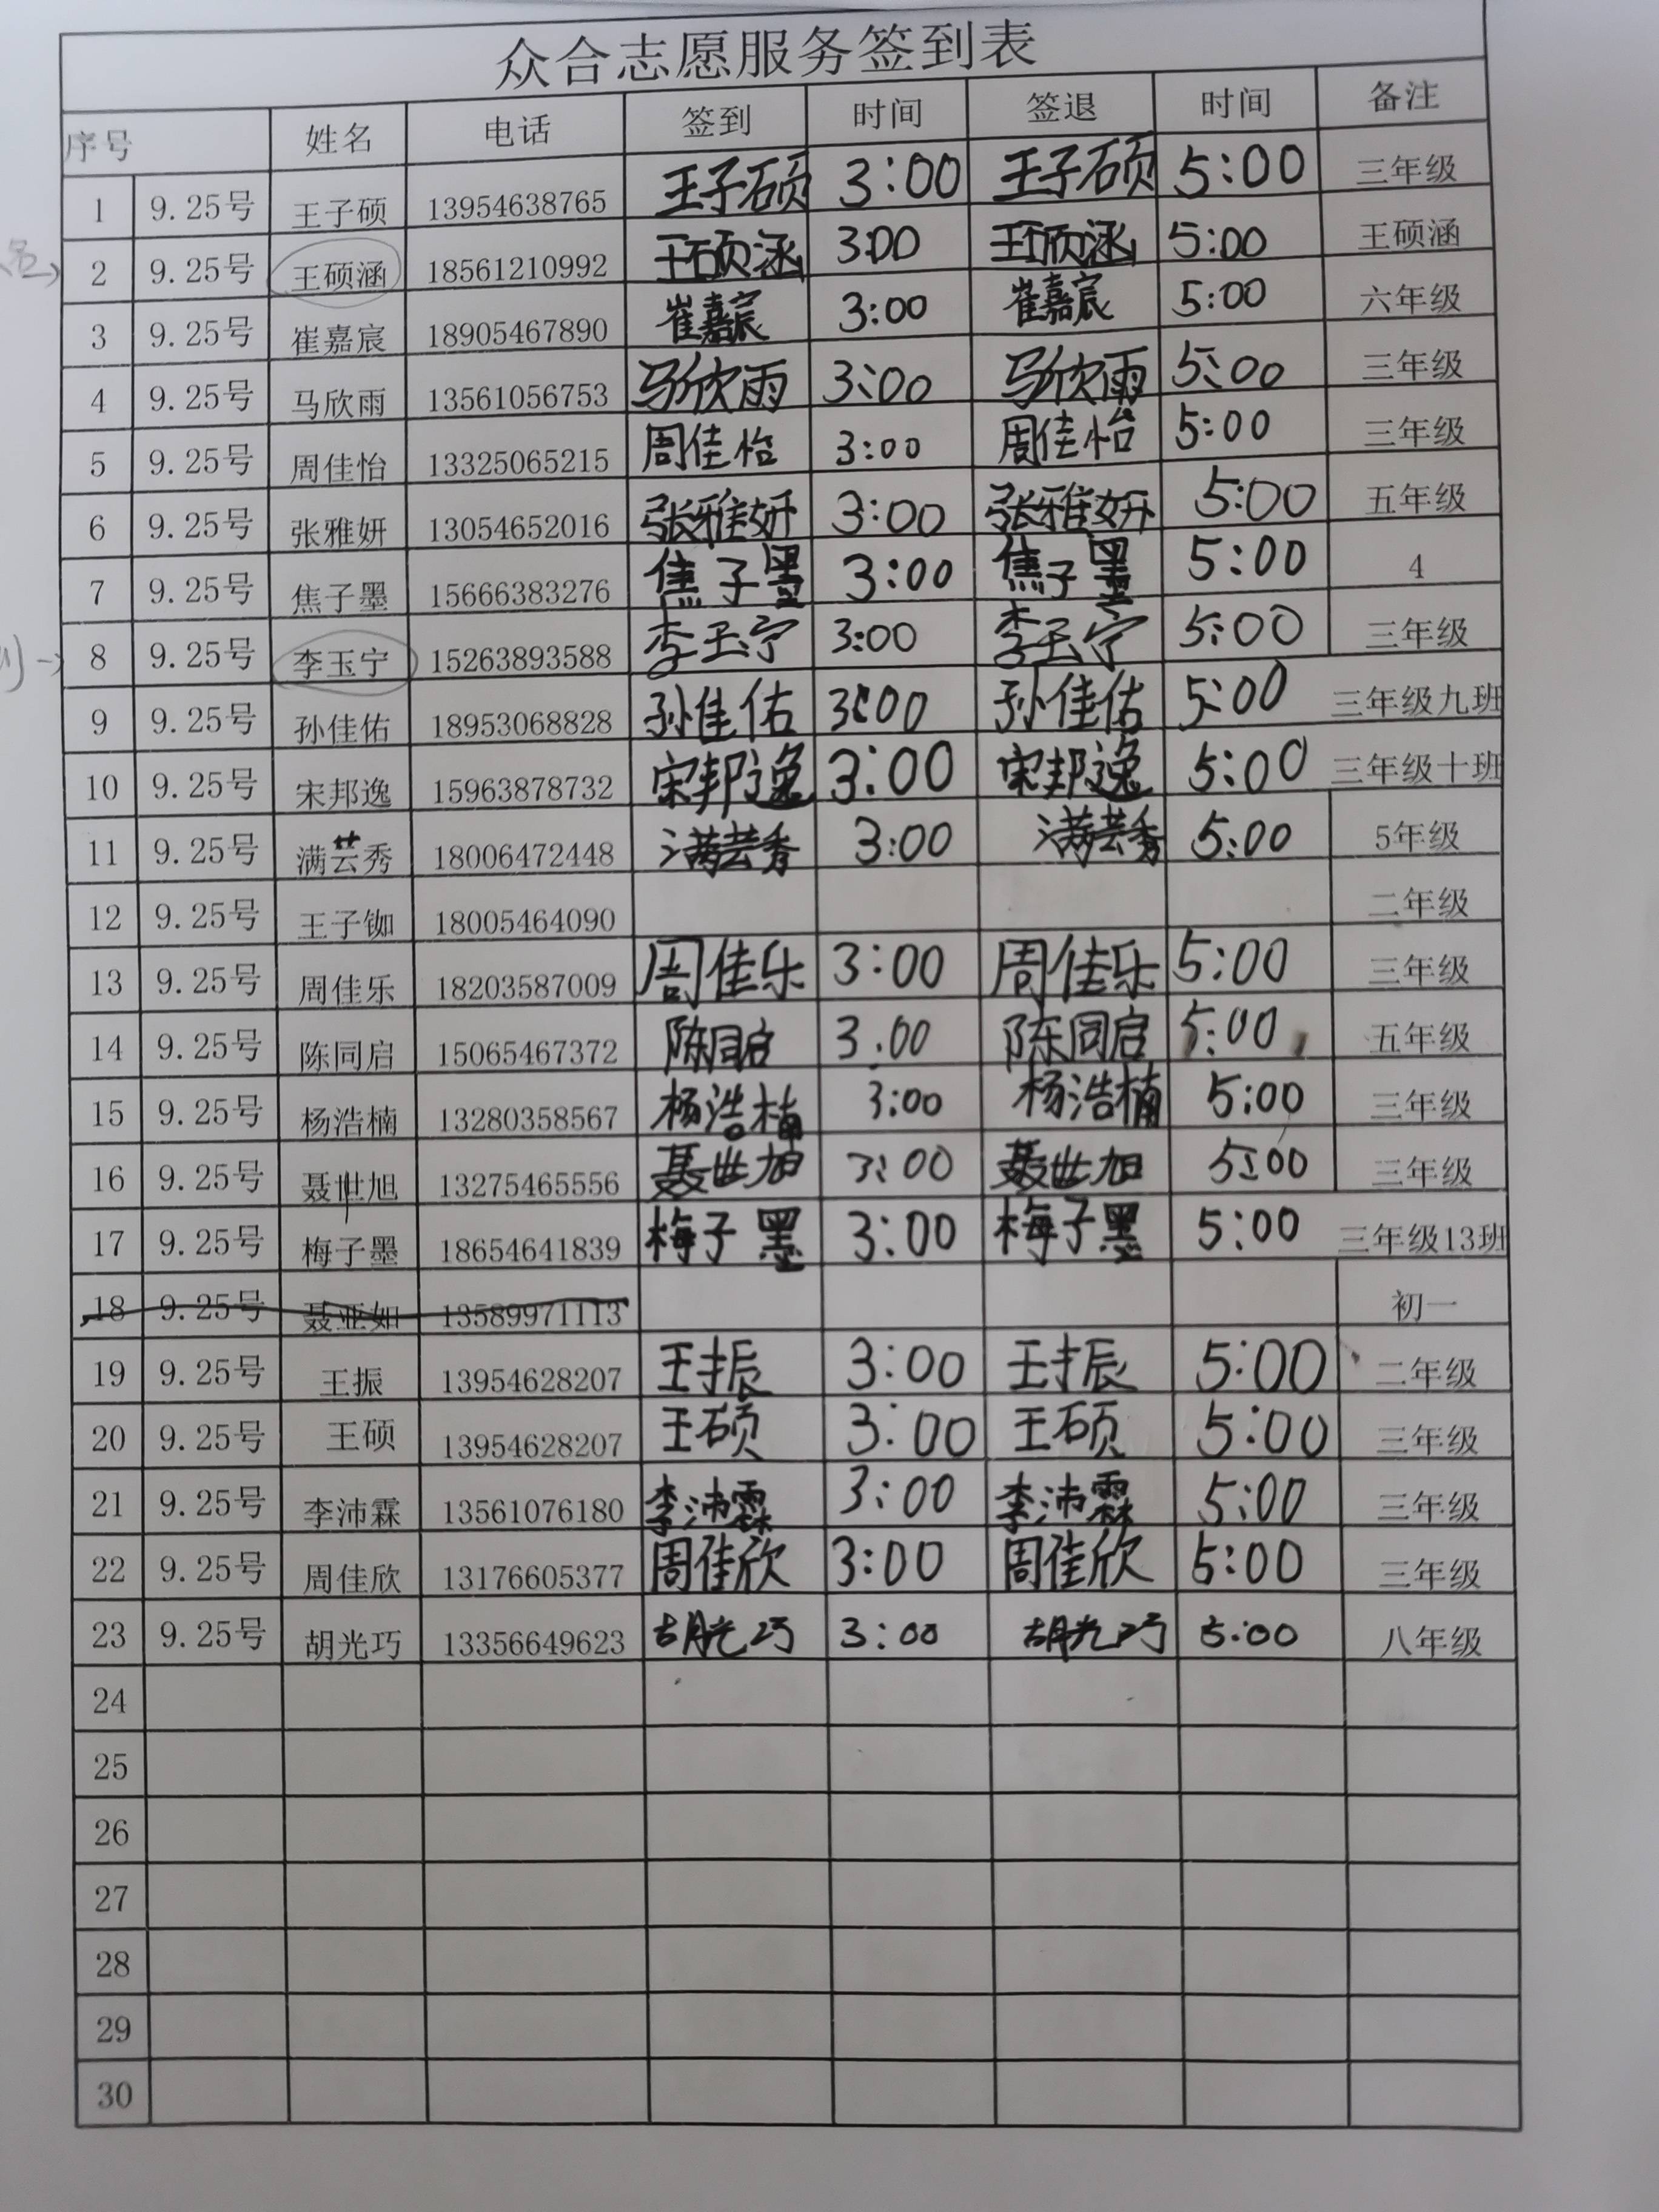 众合志愿服务签到表
序号 姓名 电话 签到 时间 签退 时间 备注
1 9.25号 王子硕 13954638765 王子硕 3:00 王子硕 5:00 三年级
2 9.25号 王硕涵 18561210992 王硕涵 3:00 王硕涵 5:00 王硕涵
3 9.25号 崔嘉宸 18905467890 崔嘉宸 3:00 崔嘉宸 5:00 六年级
4 9.25号 马欣雨 13561056753 马欣雨 3:00 马欣雨 5:00 三年级
5 9.25号 周佳怡 13325065215 周佳怡 3:00 周佳怡 5:00 三年级
6 9.25号 张雅妍 13054652016 张雅妍 3:00 张雅妍 5:00 五年级
7 9.25号 焦子墨 15666383276 焦子墨 3:00 焦子墨 5:00 4
8 9.25号 李玉宁 15263893588 李玉宁 3:00 李玉宁 5:00 三年级
9 9.25号 孙佳佑 18953068828 孙佳佑 3:00 孙佳佑 5:00 三年级九班
10 9.25号 宋邦逸 15963878732 宋邦逸 3:00 宋邦逸 5:00 三年级十班
11 9.25号 满芸秀 18006472448 满芸秀 3:00 满芸秀 5:00 5年级
12 9.25号 王子铷 18005464090 二年级
13 9.25号 周佳乐 18203587009 周佳乐 3:00 周佳乐 5:00 三年级
14 9.25号 陈同启 15065467372 陈同启 3:00 陈同启 5:00 五年级
15 9.25号 杨浩楠 13280358567 杨浩楠 3:00 杨浩楠 5:00 三年级
16 9.25号 聂世旭 13275465556 聂世旭 3:00 聂世旭 5:00 三年级
17 9.25号 梅子墨 18654641839 梅子墨 3:00 梅子墨 5:00 三年级13班
18 9.25号 聂亚如 13589971113 初一
19 9.25号 王振 13954628207 王振 3:00 王振 5:00 二年级
20 9.25号 王硕 13954628207 王硕 3:00 王硕 5:00 三年级
21 9.25号 李沛霖 13561076180 李沛霖 3:00 李沛霖 5:00 三年级
22 9.25号 周佳欣 13176605377 周佳欣 3:00 周佳欣 5:00 三年级
23 9.25号 胡光巧 13356649623 胡光巧 3:00 胡光巧 5:00 八年级
24
25
26
27
28
29
30